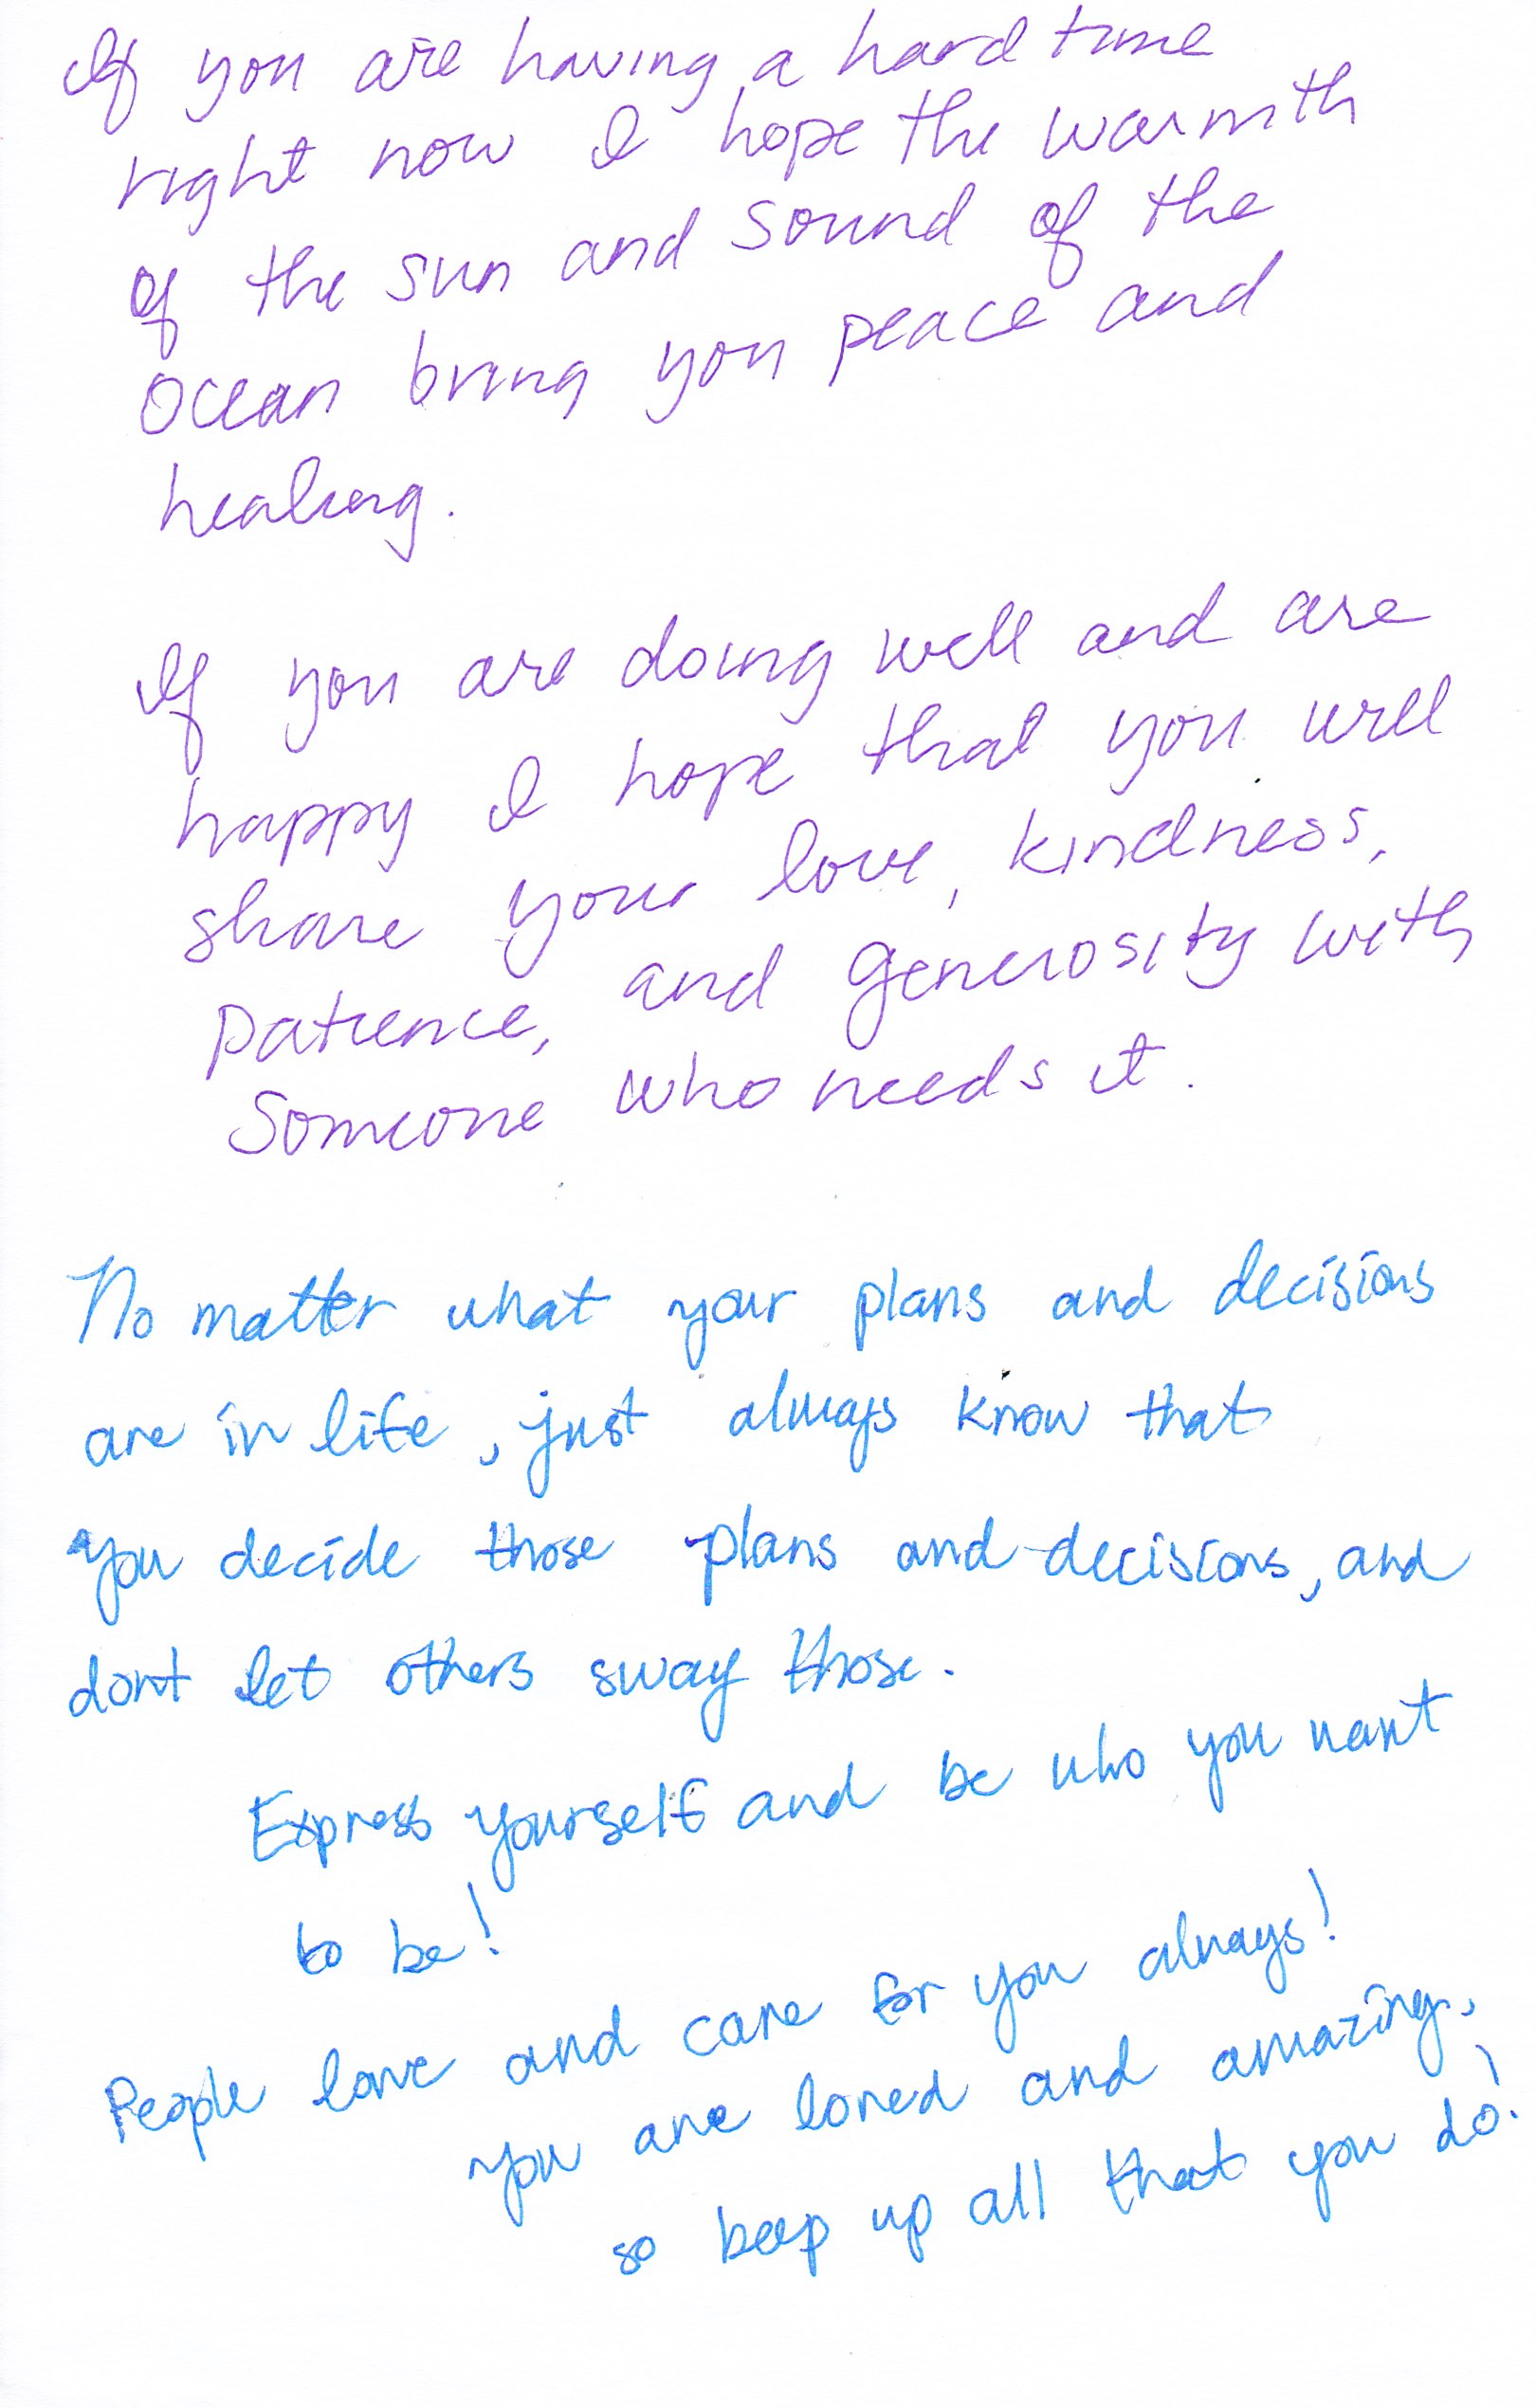 If you are having a hard time
right now I hope the warmth
of the sun and sound of the
ocean bring you peace and
healing.
If you are doing well and are
happy I hope that you will
share your love, kindness,
patience, and generosity with
someone who needs it.
No matter what your plans and decisions
are in life, just always know that
you decide those plans and decisions, and
dont let others sway those.
Express yourself and be who you want
to be!
People love and care for you always!
You are loved and amazing,
so keep up all that you do!